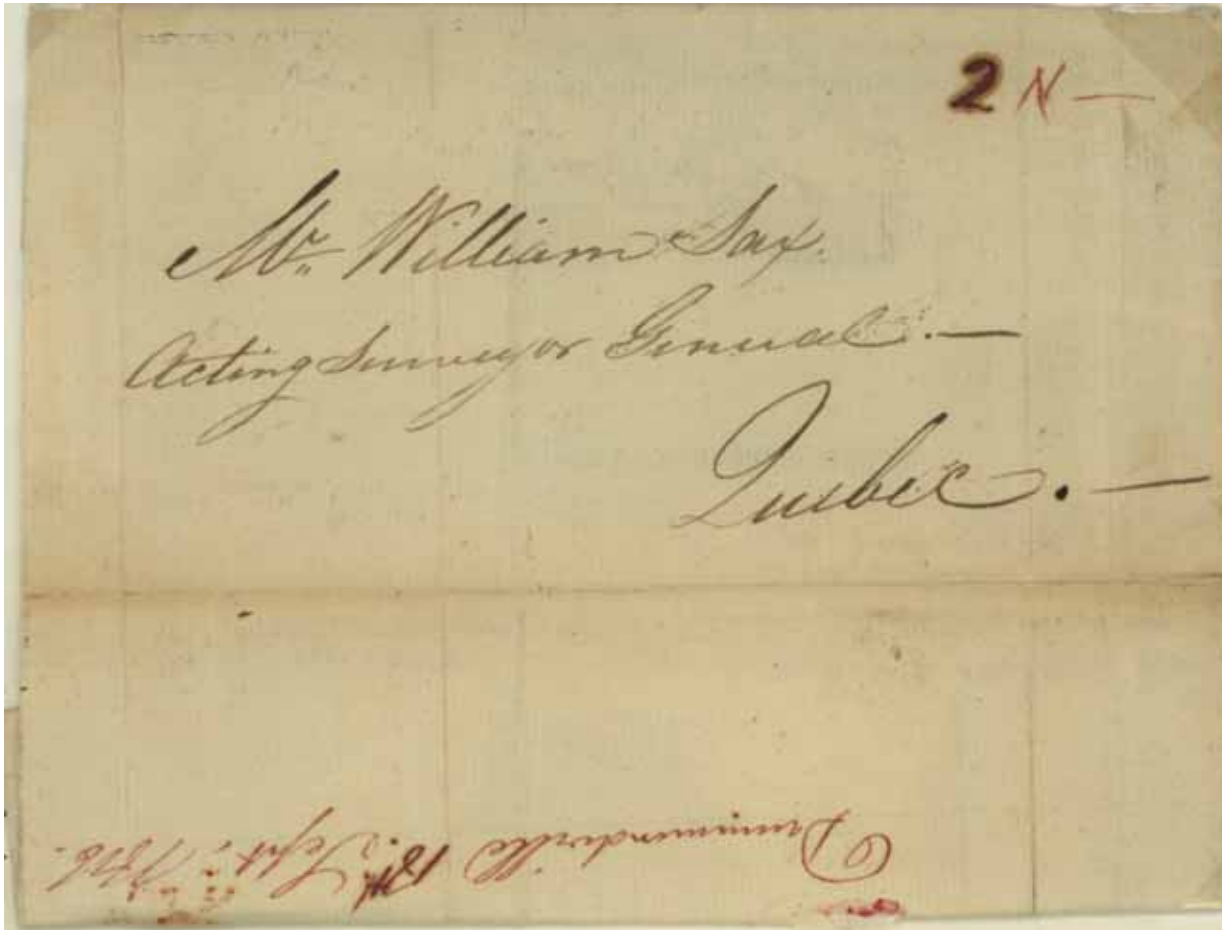 2 N —
Mr. William Sax.
Acting Surveyor General. —
Quebec. —
Drummondville 18th Sept.